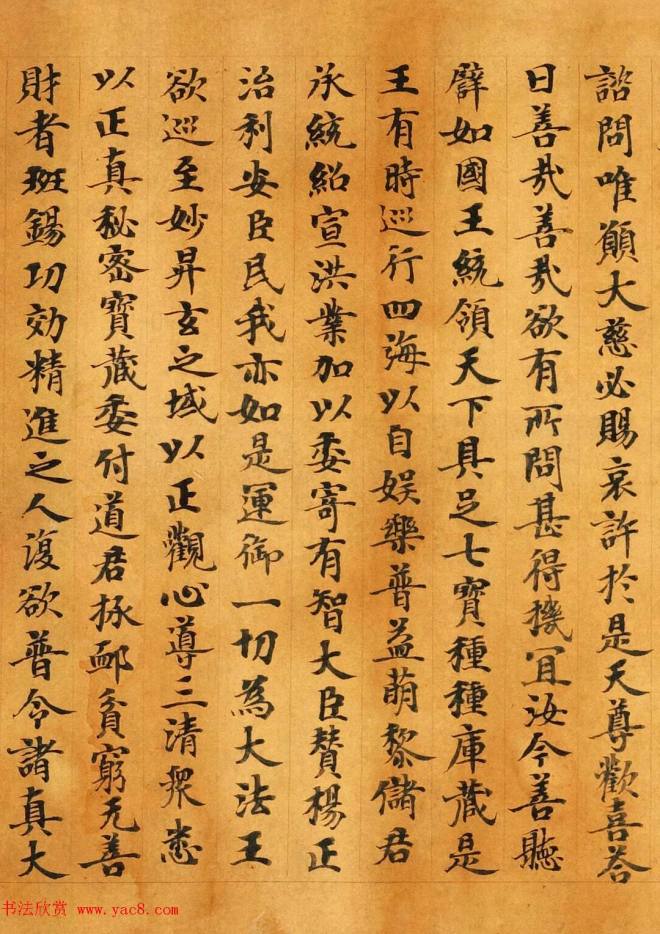 諮問唯願大慈必賜哀許於是天尊歡喜荅
曰善㦲善㦲欲有所問甚得機冝汝今善聽
譬如國王統領天下具足七寳種種庫藏是
王有時巡行四海以自娱樂普益萌黎儲君
承統紹宣洪業加以委寄有智大臣賛楊正
治利安臣民我亦如是運御一切為大法王
欲巡至妙昇玄之域以正觀心導三清衆悉
以正真秘密寳藏委付道君拯䘏貧窮无善
財者班錫功効精進之人復欲普令諸真大
书法欣赏 www.yac8.com